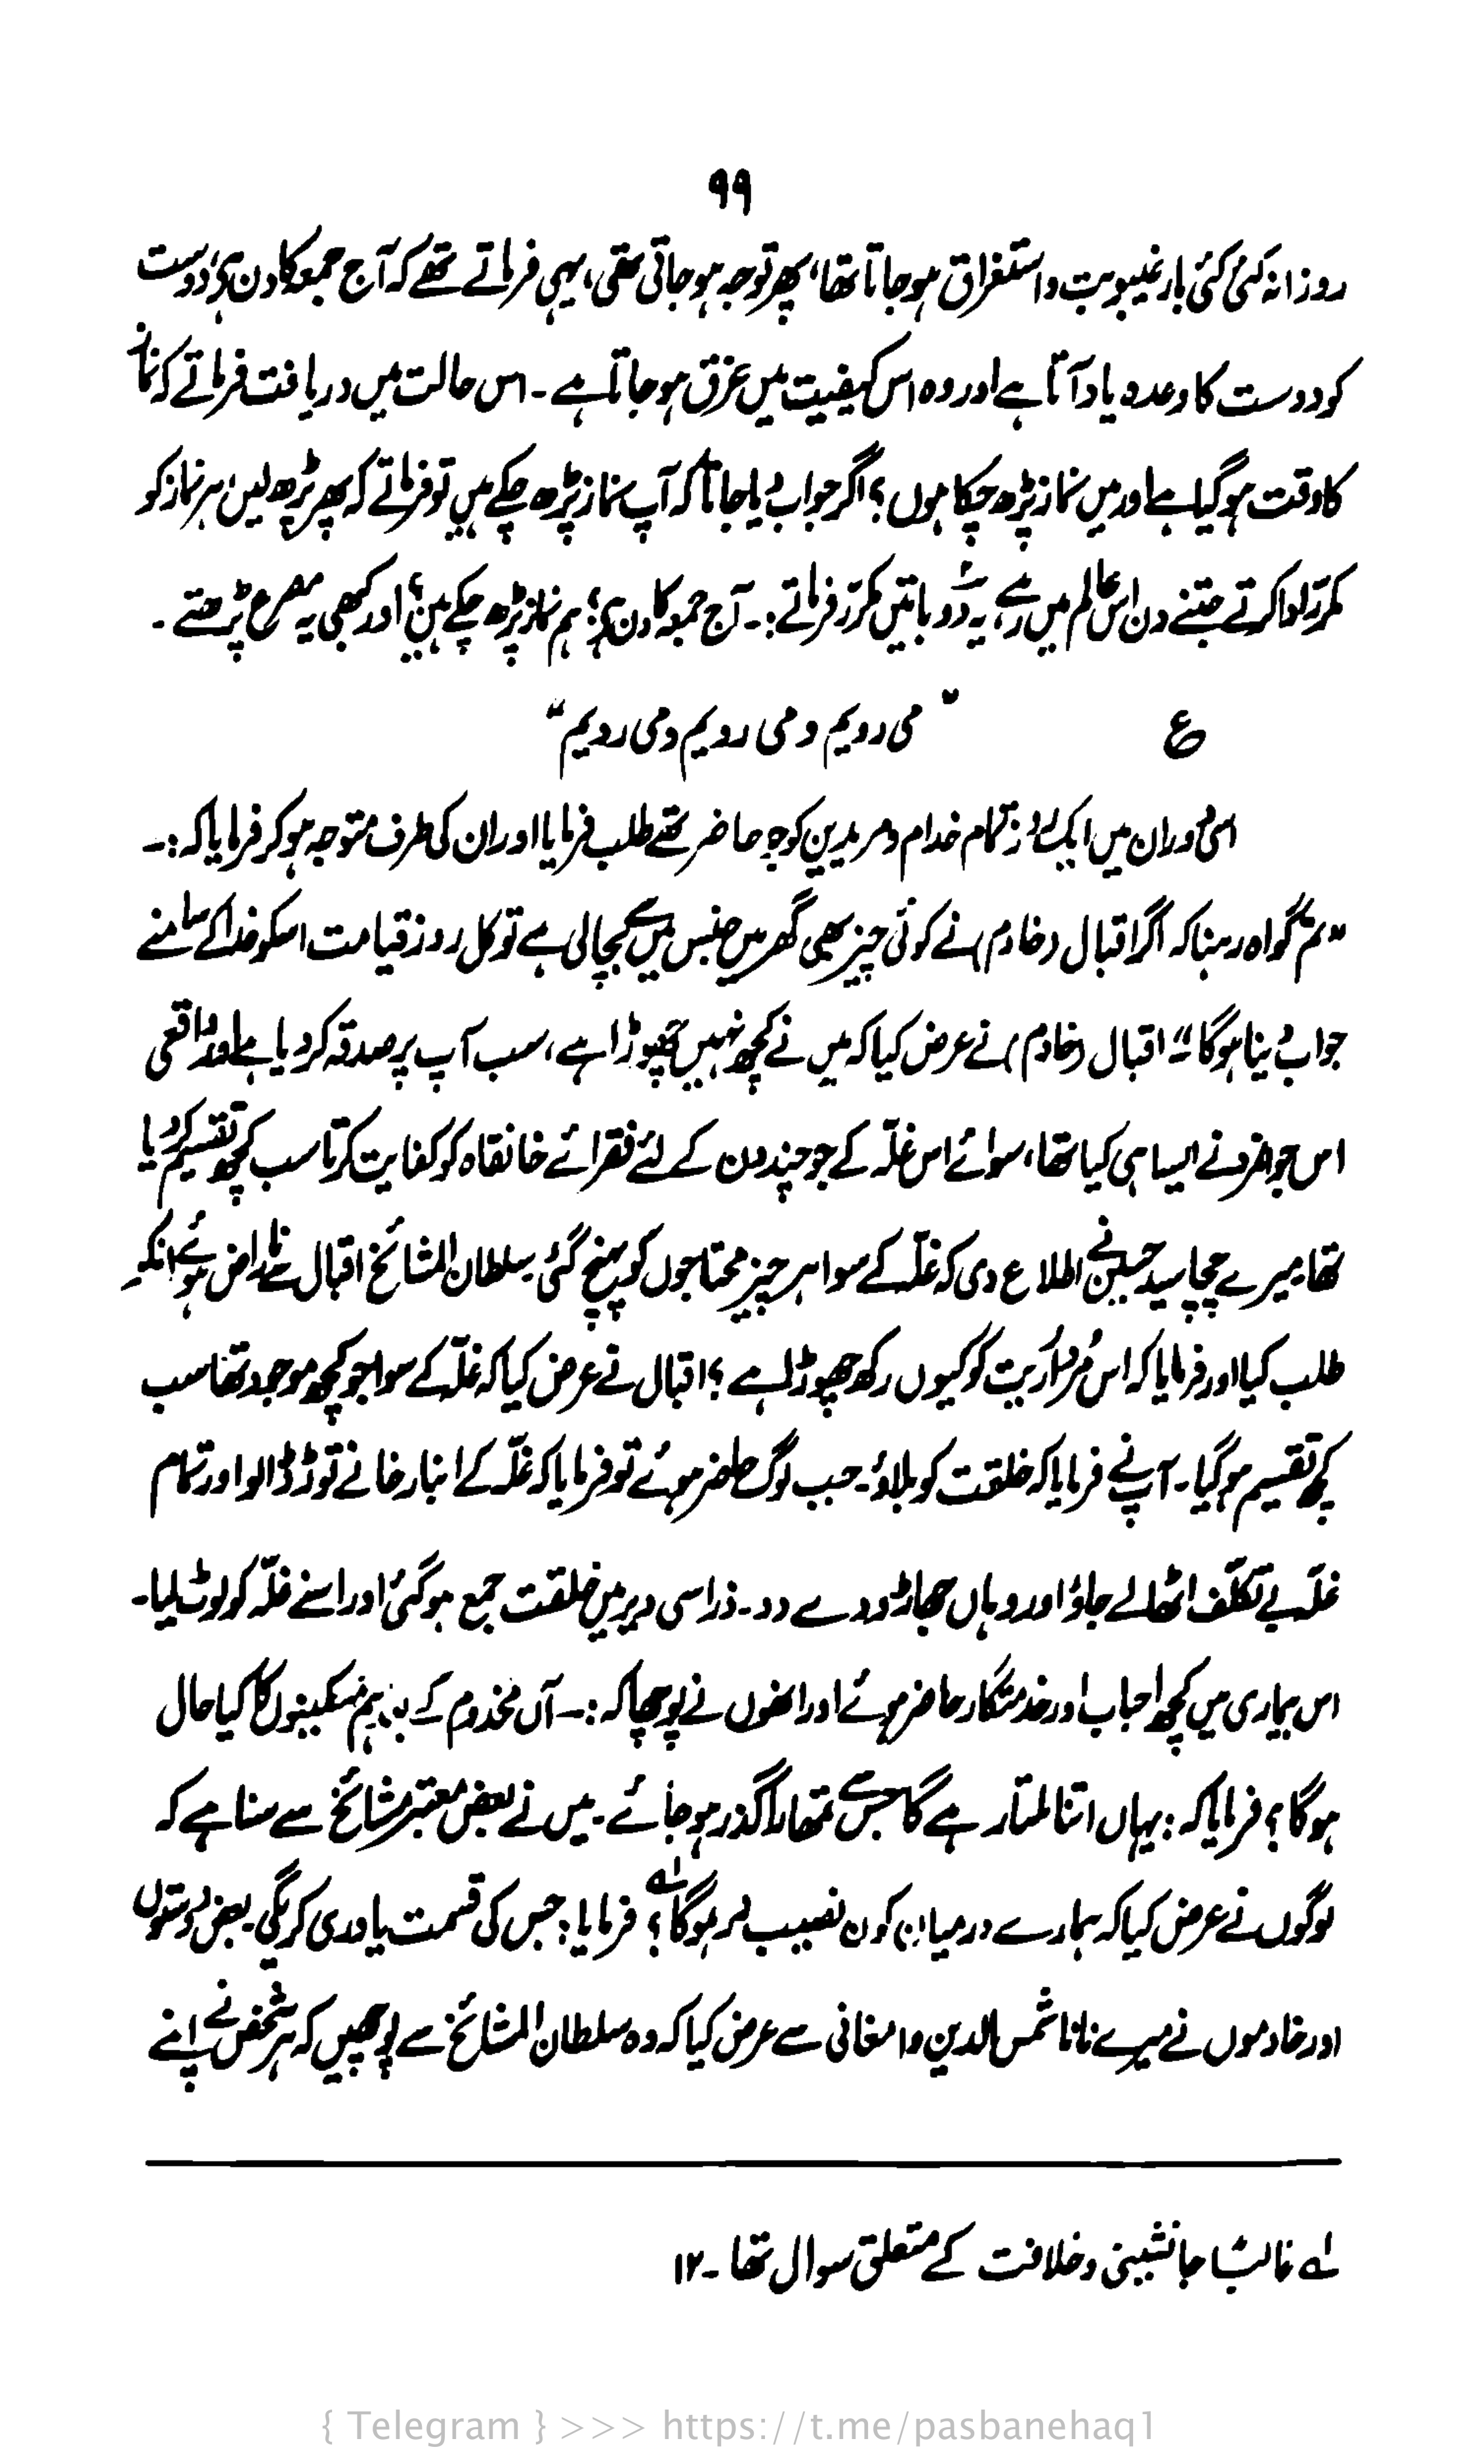 ۹۹
روزانہ کئی کئی بار غیبوبت و استغراق ہوجاتا تھا، پھر توجہ ہوجاتی تھی، یہی فرماتے تھے کہ آج جمعہ کا دن ہے، دوست
کو دوست کا وعدہ یاد آتا ہے اور وہ اس کیفیت میں غرق ہوجاتا ہے۔ اس حالت میں دریافت فرماتے کہ نماز
کا وقت ہوگیا ہے اور میں نماز پڑھ چکا ہوں؟ اگر جواب دیا جاتا کہ آپ نماز پڑھ چکے ہیں تو فرماتے کہ پھر پڑھ لیں، ہر نماز کو
مکرّر ادا کرتے جتنے دن اس عالم میں رہے، یہ دو باتیں مکرّر فرماتے:۔ آج جمعہ کا دن ہے؛ ہم نماز پڑھ چکے ہیں؟ اور کبھی یہ مصرع پڑھتے۔
ع "می رویم و می رویم و می رویم"
اسی دوران میں ایک روز تمام خدام و مریدین کو جو حاضر تھے طلب فرمایا اور ان کی طرف متوجہ ہوکر فرمایا کہ:۔
"تم گواہ رہنا کہ اگر اقبال (خادم) نے کوئی چیز بھی گھر میں جنس میں سے بچالی ہے تو کل روز قیامت اسکو خدا کے سامنے
جواب دینا ہوگا" اقبال (خادم) نے عرض کیا کہ میں نے کچھ نہیں چھوڑا ہے، سب آپ پر صدقہ کر دیا ہے اور واقعی
اس جوانمرد نے ایسا ہی کیا تھا، سوائے اس غلّہ کے جو چند دن کے لئے فقرائے خانقاہ کو کفایت کرتا سب کچھ تقسیم کردیا
تھا، میرے چچا سید حسین نے اطلاع دی کہ غلّہ کے سوا ہر چیز محتاجوں کو پہنچ گئی۔ سلطان المشائخ اقبال سے ناراض ہوئے انکو
طلب کیا اور فرمایا کہ اس مُردار ریت کو کیوں رکھ چھوڑا ہے؟ اقبال نے عرض کیا کہ غلّہ کے سوا جو کچھ موجود تھا سب
کچھ تقسیم ہوگیا۔ آپ نے فرمایا کہ خلقت کو بلاؤ۔ جب لوگ حاضر ہوئے تو فرمایا کہ غلّہ کے انبار خانے توڑ ڈالو اور تمام
غلّہ بے تکلّف اٹھالے جاؤ اور وہاں جھاڑو دے دو۔ ذرا سی دیر میں خلقت جمع ہوگئی اور اسنے غلّہ کو لوٹ لیا۔
اس بیماری میں کچھ احباب اور خدمتگار حاضر ہوئے اور انھوں نے پوچھا کہ:۔ آں مخدوم کے بعد ہم مسکینوں کا کیا حال
ہوگا؟ فرمایا کہ: یہاں اتنا ملتا رہے گا جس سے تمھارا گذر ہوجائے۔ میں نے بعض معتبر مشائخ سے سنا ہے کہ
لوگوں نے عرض کیا کہ ہمارے درمیان کون نصیب ور ہوگا؟ لہ فرمایا: جس کی قسمت یاوری کریگی۔ بعض دوستوں
اور خادموں نے میرے نانا شمس الدین دامغانی سے عرض کیا کہ وہ سلطان المشائخ سے پوچھیں کہ ہر شخص نے اپنے
لہ غالبًا جانشینی و خلافت کے متعلق سوال تھا۔۱۲
{ Telegram } >>> https://t.me/pasbanehaq1